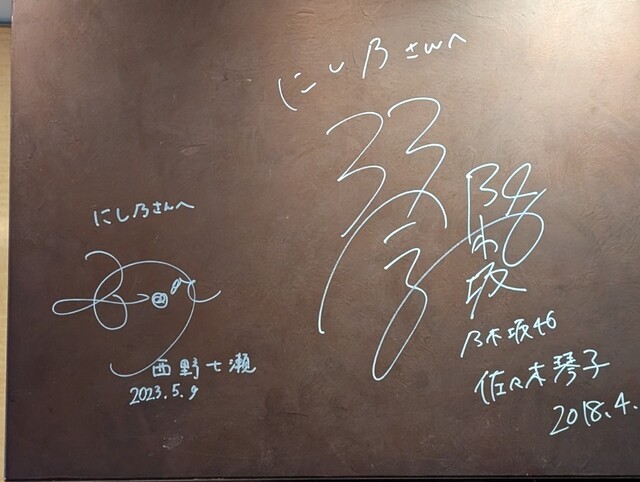 にし乃さんへ
西野七瀬
2023.5.9
にし乃さんへ
乃木坂46
佐々木琴子
2018.4.